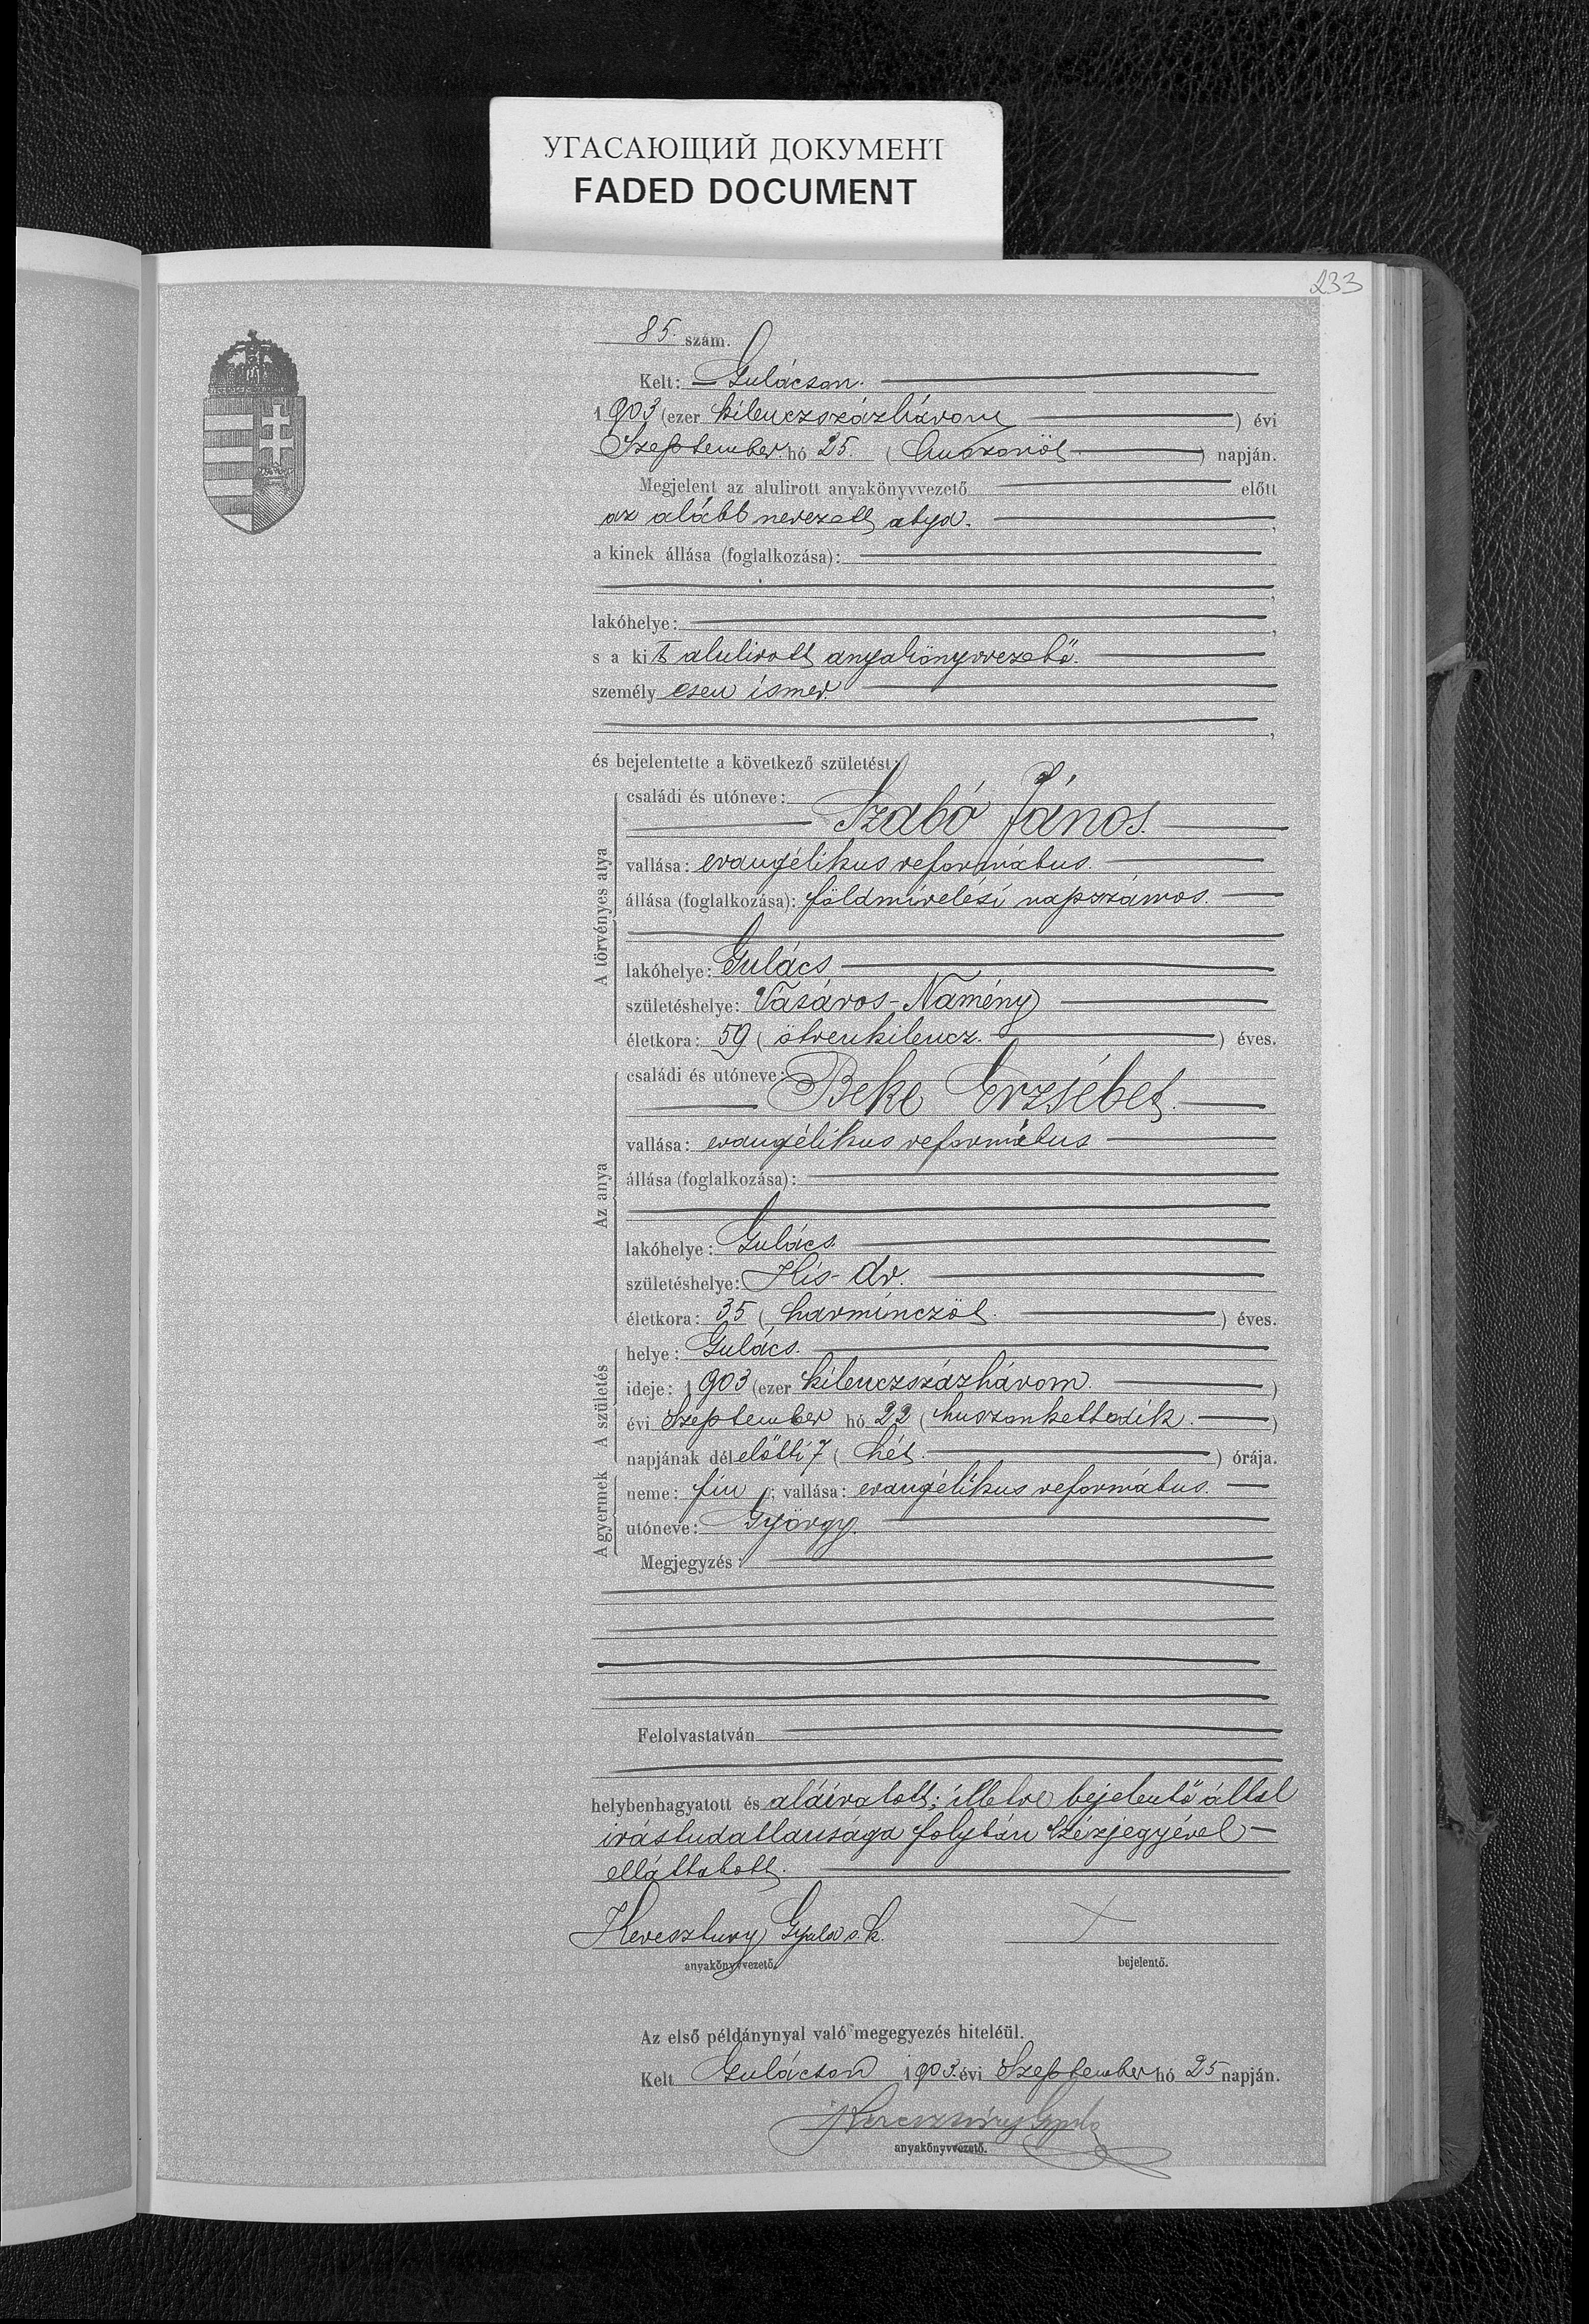 УГАСАЮЩИЙ ДОКУМЕНТ
FADED DOCUMENT
233
85. szám.
Kelt: Gulácson.
1903 (ezer kilenczszázhárom) évi
Szeptember hó 25. (huszonöt) napján.
Megjelent az alulirott anyakönyvvezető előtt
az alább nevezett atya.
a kinek állása (foglalkozása):
lakóhelye:
s a kit alulirott anyakönyvvezető.
személyesen ismer
és bejelentette a következő születést:
A törvényes atya
családi és utóneve:
Szabó János.
vallása: evangélikus református.
állása (foglalkozása): földmívelési napszámos.
lakóhelye: Gulács
születéshelye: Vásáros-Namény
életkora: 59 (ötvenkilencz.) éves.
Az anya
családi és utóneve:
Beke Erzsébet.
vallása: evangélikus református
állása (foglalkozása):
lakóhelye: Gulács
születéshelye: Kis-Ar.
életkora: 35 (harminczöt.) éves.
A születés
helye: Gulács.
ideje: 1903 (ezer kilenczszázhárom.)
évi Szeptember hó 22 (huszonkettedik.)
napjának délelőtti 7 (hét.) órája.
A gyermek
neme: fiu; vallása: evangélikus református.
utóneve: György.
Megjegyzés:
Felolvastatván
helybenhagyatott és aláiratott; illetve bejelentő által
irástudatlansága folytán kézjegyével
elláttatott.
Keresztury Gyula s. k.
anyakönyvvezető.
bejelentő.
Az első példánynyal való megegyezés hiteléül.
Kelt Gulácson 1903. évi Szeptember hó 25 napján.
Keresztury Gyula
anyakönyvvezető.